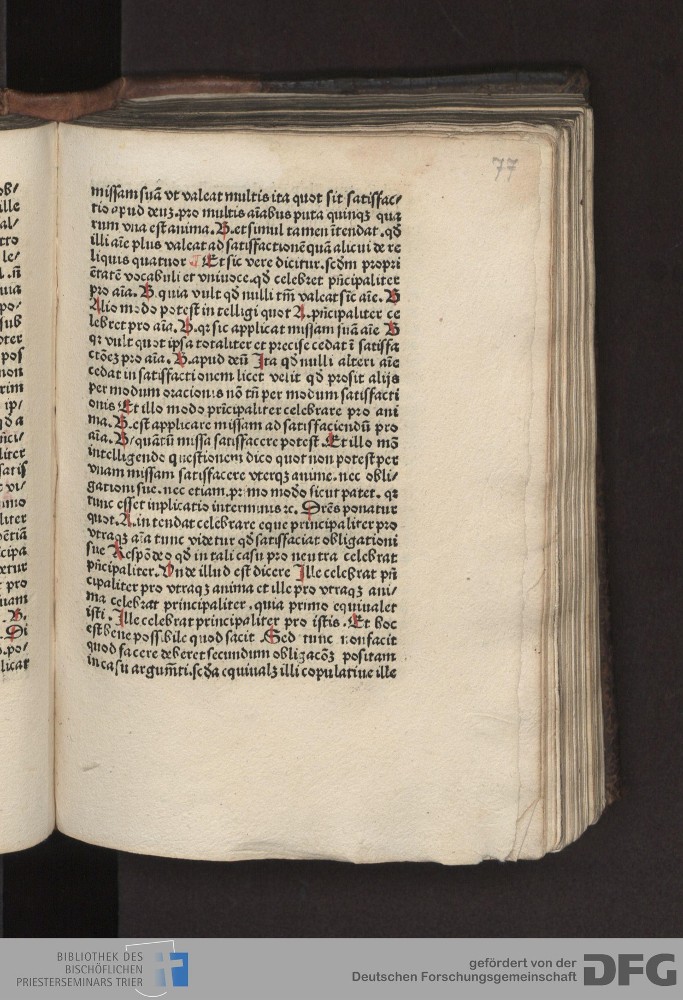 77
missam suā vt valeat multis ita quot sit satisfac/
tio apud deuȝ.pro multis aīabus puta quinqȝ qua
rum vna est anima. B.et simul tamen ītendat.qđ
illi aīe plus valeat ad satisfactionē quā alicui de re
liquis quatuor ¶ Et sic vere dicitur.scđm propri
ētatē vocabuli et vniuoce.qđ celebret pn̄cipaliter
pro aīa. B. quia vult qđ nulli tm̄ valeat sic̄ aīe. B
Alio modo potest intelligi quot A.pn̄cipaliter ce
lebret pro aīa. B.qr sic applicat missam suā aīe B
qr vult quot ipsa totaliter et precise cedat ī satisfa
ctōeȝ pro aīa. B.apud deū Ita qđ nulli alteri aīe
cedat in satisfactionem licet velit qđ prosit alijs
per modum oracionis nō tn̄ per modum satisfacti
onis Et illo modo prīcipaliter celebrare pro ani
ma. B.est applicare missam ad satisfaciendū pro
aīa. B/quātū missa satisfacere potest. Et illo mō
intelligendo questionem dico quot non potest per
vnam missam satisfacere vterqȝ anime.nec obli/
gationi sue.nec etiam.primo modo sicut patet.qr
tunc esset inplicatio interminis ꝛc. Drēs ponatur
quot. A.intendat celebrare eque principaliter pro
vtraqȝ aīa tunc videtur qđ satisfaciat obligationi
sue Respōdeo qđ in tali casu pro neutra celebrat
pn̄cipaliter. Vnde illud est dicere Ille celebrat pn̄
cipaliter pro vtraqȝ anima et ille pro vtraqȝ ani/
ma celebrat principaliter.quia primo equiualet
isti. Ille celebrat principaliter pro istis. Et hoc
est bene possibile quod facit .Sed tunc non facit
quod facere deberet secundum obligacōȝ positam
in casu argum̄ti.scđa equiualȝ illi copulatiue ille
BIBLIOTHEK DES
BISCHÖFLICHEN
PRIESTERSEMINARS TRIER
gefördert von der
Deutschen Forschungsgemeinschaft
DFG